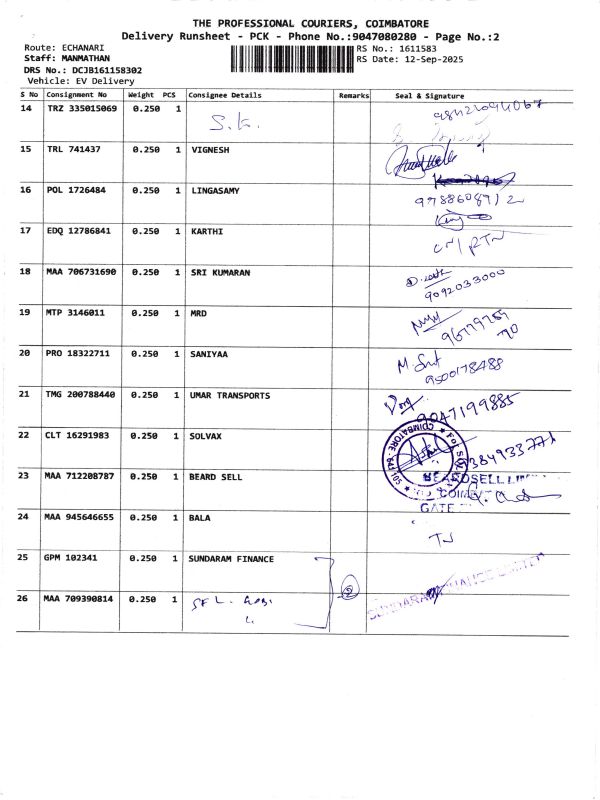 THE PROFESSIONAL COURIERS, COIMBATORE
Delivery Runsheet - PCK - Phone No.:9047080280 - Page No.:2
Route: ECHANARI
RS No.: 1611583
Staff: MANMATHAN
RS Date: 12-Sep-2025
DRS No.: DCJB161158302
Vehicle: EV Delivery
S No Consignment No Weight PCS Consignee Details Remarks Seal & Signature
14 TRZ 335015069 0.250 1 S.K.
15 TRL 741437 0.250 1 VIGNESH
16 POL 1726484 0.250 1 LINGASAMY
9788608712
17 EDQ 12786841 0.250 1 KARTHI
18 MAA 706731690 0.250 1 SRI KUMARAN
9092033000
19 MTP 3146011 0.250 1 MRD
20 PRO 18322711 0.250 1 SANIYAA
9500178488
21 TMG 200788440 0.250 1 UMAR TRANSPORTS
9047199885
22 CLT 16291983 0.250 1 SOLVAX
COIMBATORE - 641
23 MAA 712208787 0.250 1 BEARD SELL
BEARDSELL
GATE
24 MAA 945646655 0.250 1 BALA
25 GPM 102341 0.250 1 SUNDARAM FINANCE
2
SUNDARAM FINANCE LIMITED
26 MAA 709390814 0.250 1